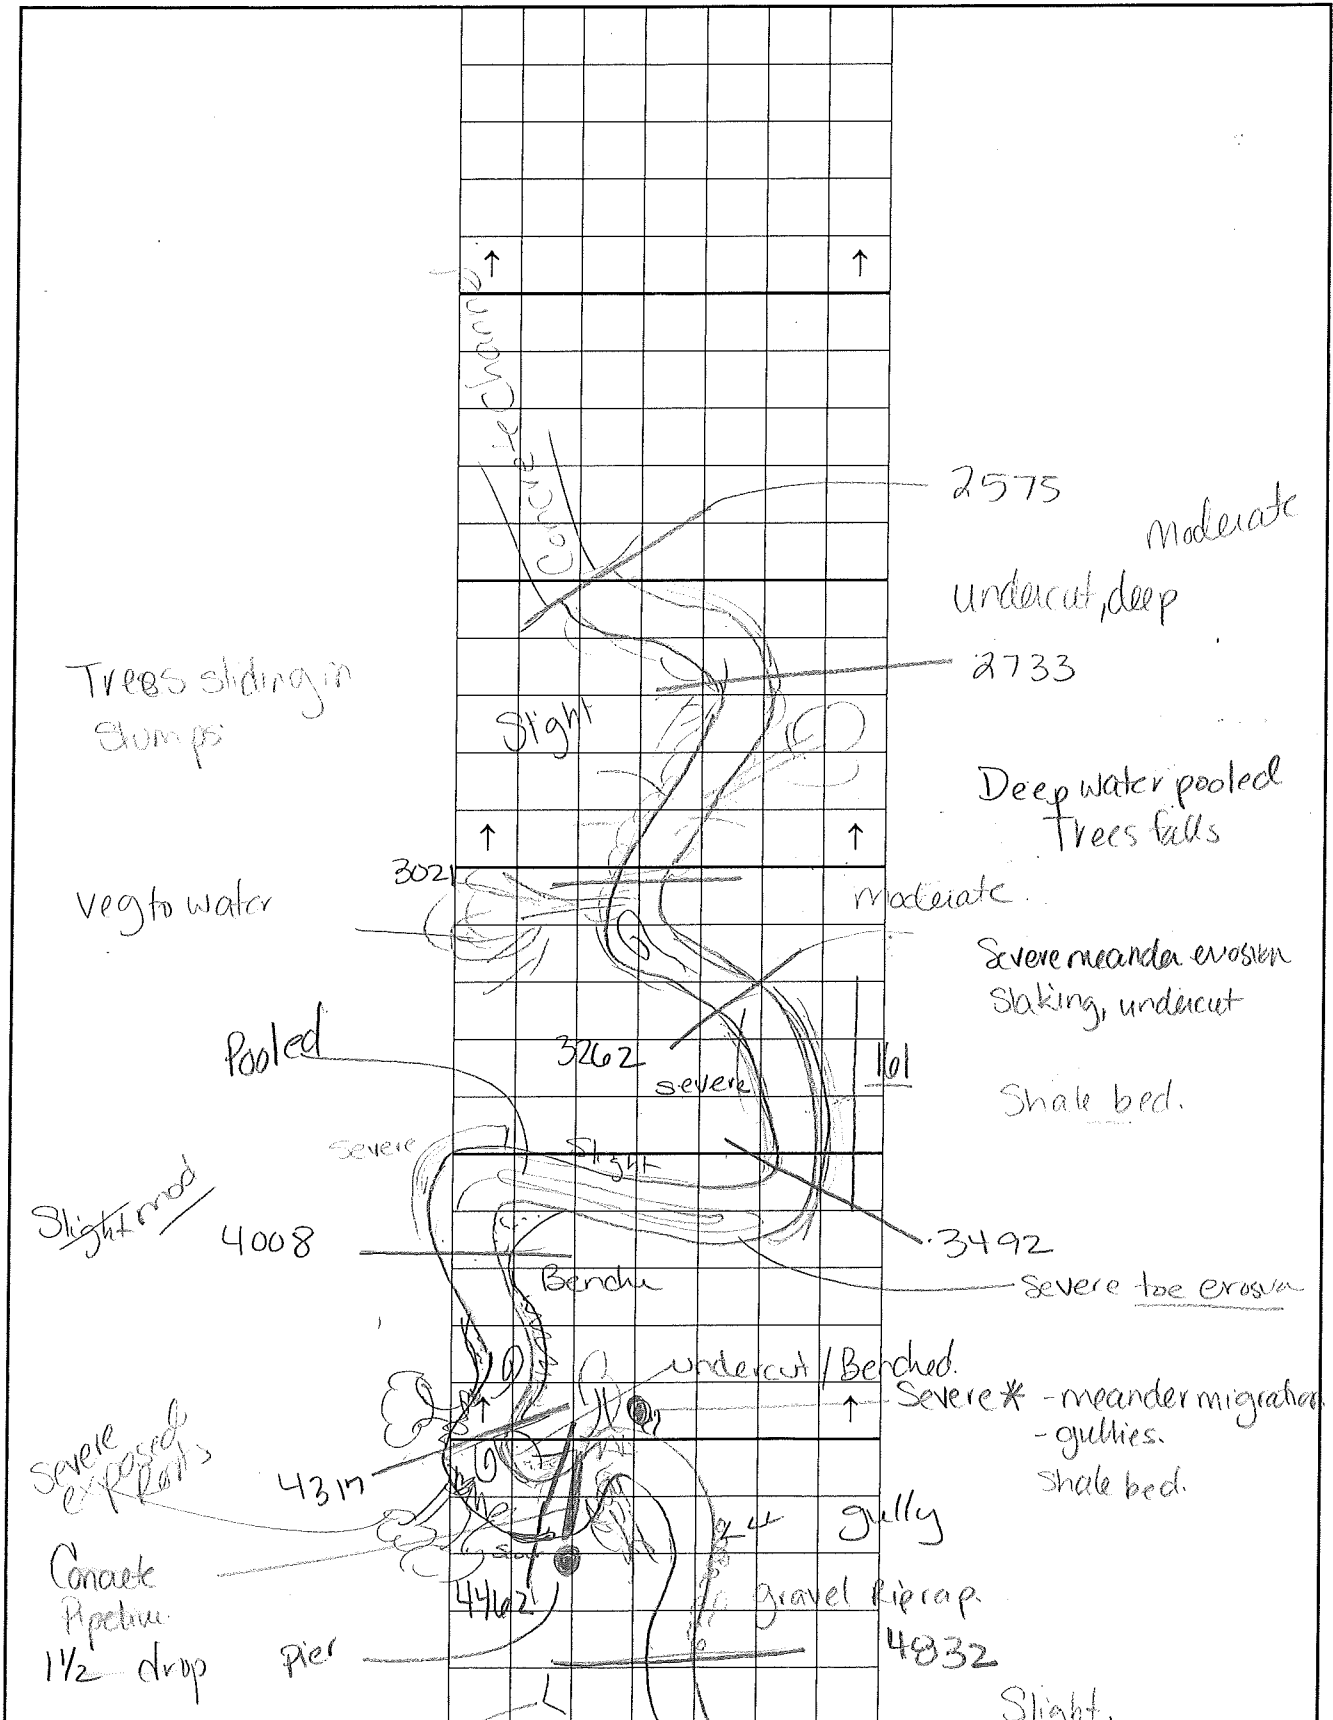 ↑ ↑
Concrete Channel
2575
Moderate
undercut, deep
2733
Trees sliding in
Slumps
Slight
Deep water pooled
Trees falls
↑ ↑
3021
Veg to water
moderate
Severe meander erosion
Slaking, undercut
Pooled
3262
severe
161
Shale bed.
severe
Slight
Slight mod
4008
3492
Severe toe erosion
undercut / Benched.
↑ ↑
Severe * - meander migration
- gullies.
Shale bed.
Severe
exposed
Roots
gully
Concrete
Pipeline
1 1/2 drop
4462
gravel Riprap.
Pier
4832
Slight.